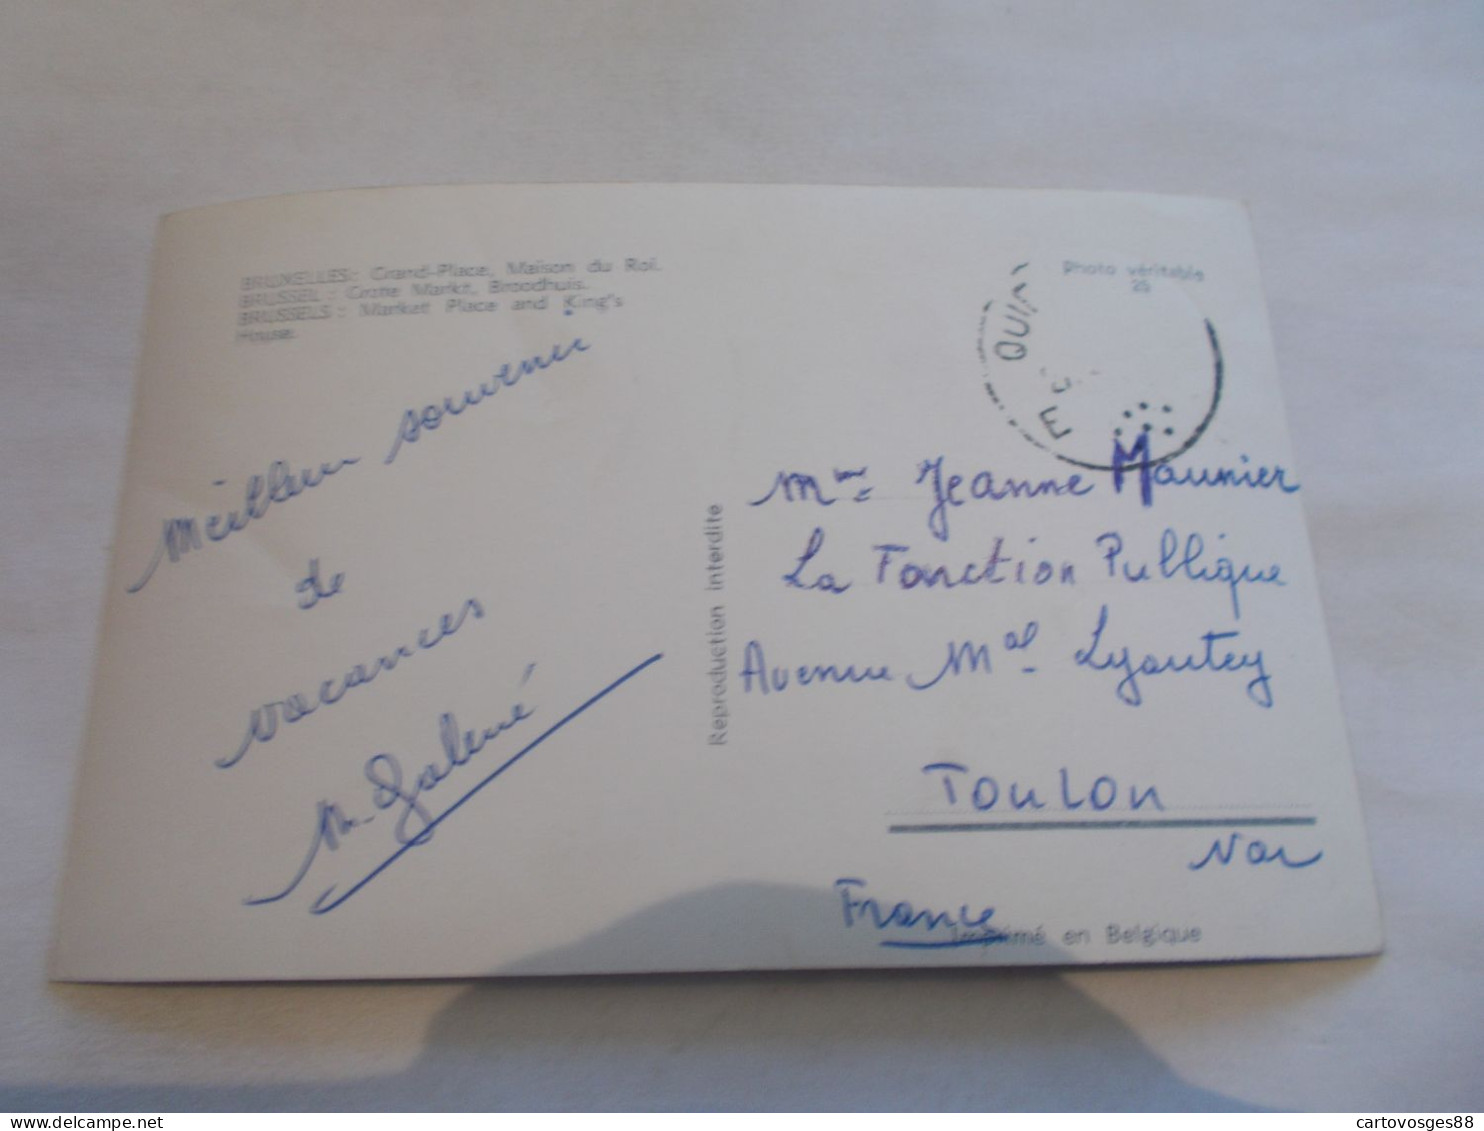 BRUXELLES : Grand-Place, Maison du Roi.
BRUSSEL : Grote Markt, Broodhuis.
BRUSSELS : Market Place and King's
House.
Meilleur souvenir
de
vacances
M. Galené
Reproduction interdite
Photo véritable
25
QUI
E
Mme Jeanne Maunier
La Fonction Publique
Avenue Mal Lyautey
Toulon
Var
France
Imprimé en Belgique
cartovosges88